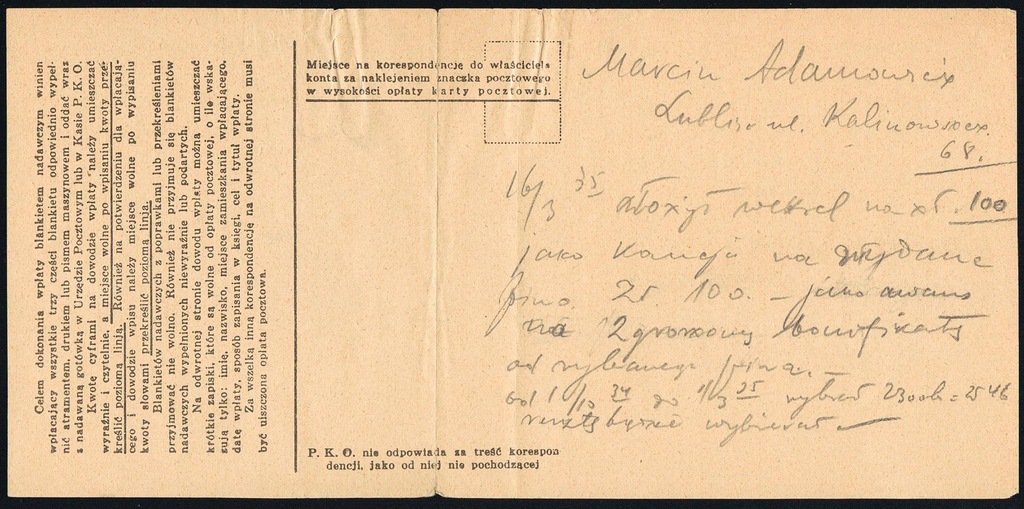 Celem dokonania wpłaty blankietem nadawczym winien
wpłacający wszystkie trzy części blankietu odpowiednio wypeł-
nić atramentem, drukiem lub pismem maszynowem i oddać wraz
z nadawaną gotówką w Urzędzie Pocztowym lub w Kasie P. K. O.
Kwotę cyframi na dowodzie wpłaty należy umieszczać
wyraźnie i czytelnie, a miejsce wolne po wpisaniu kwoty prze-
kreślić poziomą linją. Również na potwierdzeniu dla wpłacają-
cego i dowodzie wpisu należy miejsce wolne po wypisaniu
kwoty słowami przekreślić poziomą linją.
Blankietów nadawczych z poprawkami lub przekreśleniami
przyjmować nie wolno. Również nie przyjmuje się blankietów
nadawczych wypełnionych niewyraźnie lub podartych.
Na odwrotnej stronie dowodu wpłaty można umieszczać
krótkie zapiski, które są wolne od opłaty pocztowej, o ile wska-
zują tylko: imię, nazwisko, miejsce zamieszkania wpłacającego,
datę wpłaty, sposób zapisania w księgi, cel i tytuł wpłaty.
Za wszelką inną korespondencję na odwrotnej stronie musi
być uiszczona opłata pocztowa.
Miejsce na korespondencję do właściciela
konta za naklejeniem znaczka pocztowego
w wysokości opłaty karty pocztowej.
P. K. O. nie odpowiada za treść korespon
dencji, jako od niej nie pochodzącej
Marcin Adamowicz
Lublin ul.
68.
16/3 35 złożył weksel na zł. 100
jako kaucja na wydane
piwo zł. 100. — jako awans
na 2 groszowy bonifikaty
od wybranego piwa. —
od 1/10 34 do 1/3 35 wybrał
wybierał —